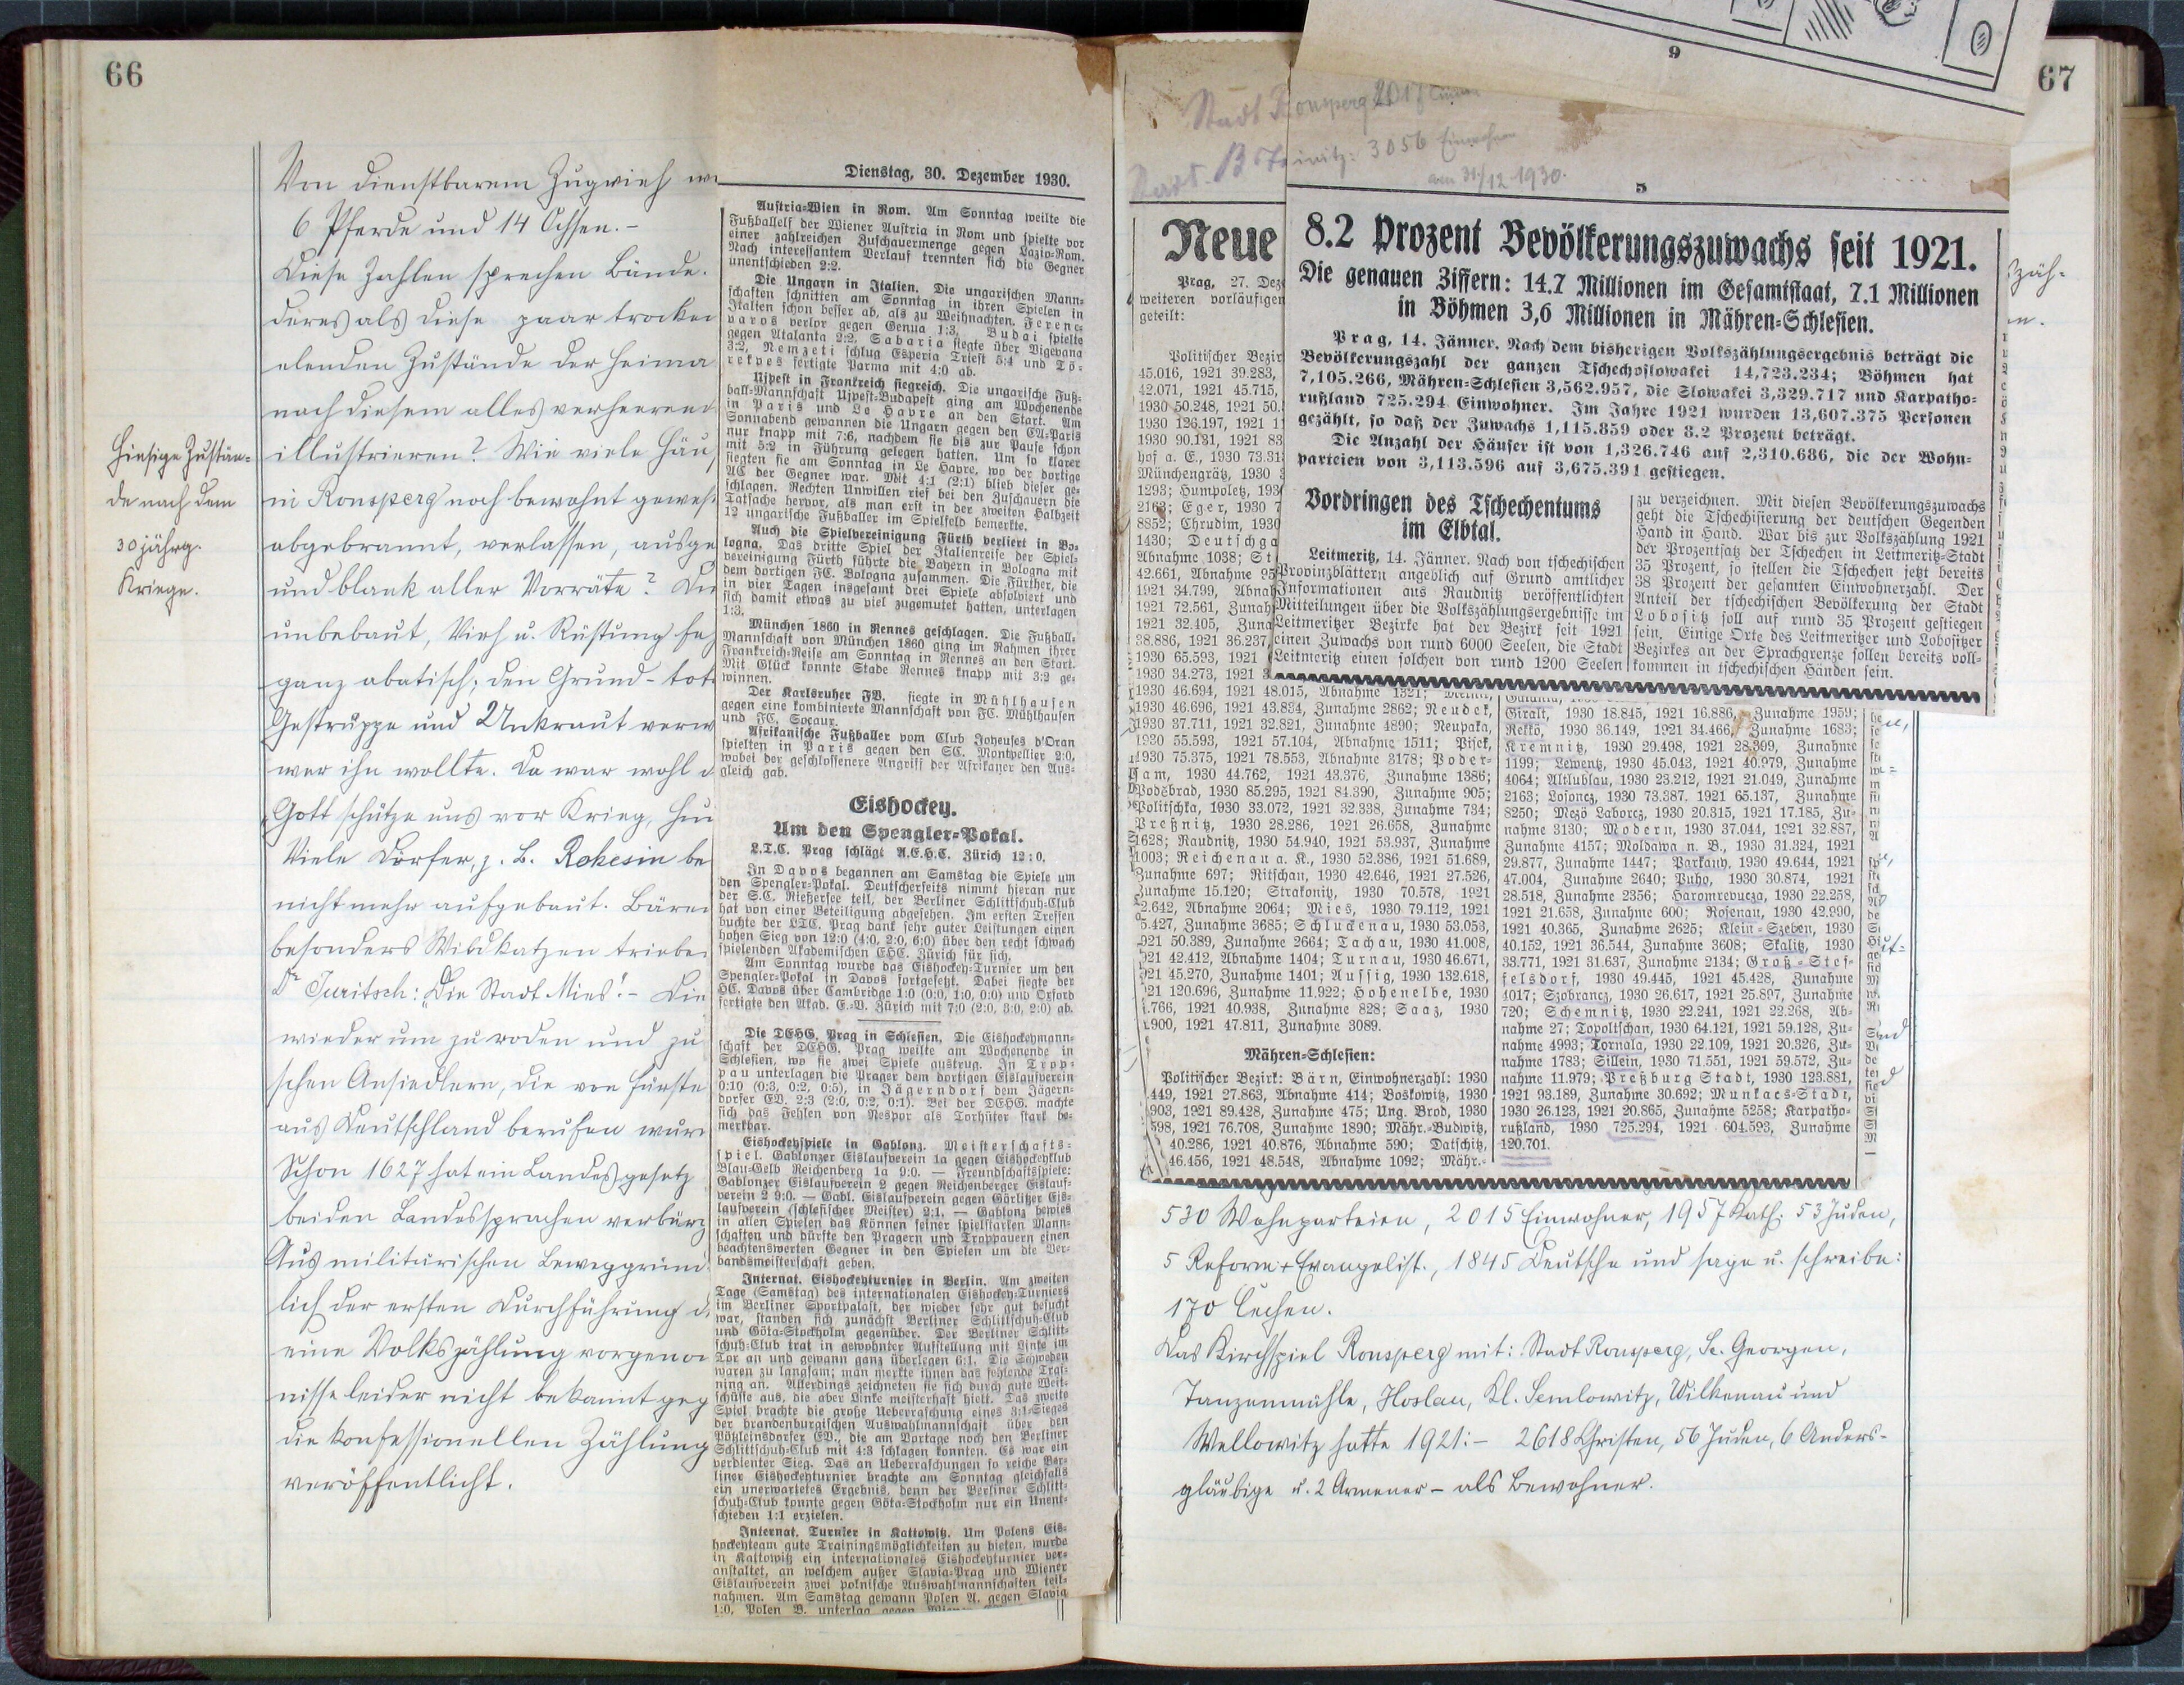 66
Von dienstbarem Zugvieh
6 Pferde und 14 Ochsen. -
Diese Zahlen sprechen Bände.
deres als diese paar trocken
elenden Zustände der Heima
nach diesem alles verheerend
illustrieren? Wie viele Häu
in Ronsperg noch bewohnt gewes
abgebrannt, verlassen, ausge
und blank aller Vorräte? Die
unbebaut, Vieh u. Rüstung
ganz abatisch; den Grund-
Gestrüppe und Unkraut verw
wer ihn wollte. Da war wohl d
„Gott schütze uns vor Krieg,
Viele Dörfer, z. B. Rokesin be
nicht mehr aufgebaut. Bären
besonders Wildkatzen triebe
Dr Juritsch: „Die Stadt Mies“. - Die
wiederum zu roden und zu
schen Ansiedlern, die von Fürste
aus Deutschland berufen wur
Schon 1627 hat ein Landesgesetz
beiden Landessprachen verbürg
Aus militärischen Beweggrün
lich der ersten Durchführung d
eine Volkszählung vorgenom
nisse leider nicht bekannt geg
die konfessionellen Zählung
veröffentlicht.
Hiesige Zustän-
de nach dem
30 jährg.
Kriege.
Dienstag, 30. Dezember 1930.
Austria-Wien in Rom. Am Sonntag weilte die
Fußballelf der Wiener Austria in Rom und spielte vor
einer zahlreichen Zuschauermenge gegen Lazio-Rom.
Nach interessantem Verlauf trennten sich die Gegner
unentschieden 2:2.
Die Ungarn in Italien. Die ungarischen Mann-
schaften schnitten am Sonntag in ihren Spielen in
Italien schon besser ab, als zu Weihnachten. Ferenc-
varos verlor gegen Genua 1:3, Budai spielte
gegen Atalanta 2:2, Sabaria siegte über Vigevana
3:2, Nemzeti schlug Esperia Triest 5:4 und Tö-
rekves fertigte Parma mit 4:0 ab.
Ujpest in Frankreich siegreich. Die ungarische Fuß-
ball-Mannschaft Ujpest-Budapest ging am Wochenende
in Paris und Le Havre an den Start. Am
Sonnabend gewannen die Ungarn gegen den CA-Paris
nur knapp mit 7:6, nachdem sie bis zur Pause schon
mit 5:2 in Führung gelegen hatten. Um so klarer
siegten sie am Sonntag in Le Havre, wo der dortige
AC der Gegner war. Mit 4:1 (2:1) blieb dieser ge-
schlagen. Rechten Unwillen rief bei den Zuschauern die
Tatsache hervor, als man erst in der zweiten Halbzeit
12 ungarische Fußballer im Spielfeld bemerkte.
Auch die Spielvereinigung Fürth verliert in Bo-
logna. Das dritte Spiel der Italienreise der Spiel-
vereinigung Fürth führte die Bayern in Bologna mit
dem dortigen FC. Bologna zusammen. Die Fürther, die
in vier Tagen insgesamt drei Spiele absolviert und
sich damit etwas zu viel zugemutet hatten, unterlagen
1:3.
München 1860 in Rennes geschlagen. Die Fußball-
Mannschaft von München 1860 ging im Rahmen ihrer
Frankreich-Reise am Sonntag in Rennes an den Start.
Mit Glück konnte Stade Rennes knapp mit 3:2 ge-
winnen.
Der Karlsruher FV. siegte in Mühlhausen
gegen eine kombinierte Mannschaft von FC. Mühlhausen
und FC. Socaux.
Afrikanische Fußballer vom Club Joyeuses d'Oran
spielten in Paris gegen den SC. Montpellier 2:0,
wobei der geschlossenere Angriff der Afrikaner den Aus-
gleich gab.
Eishockey.
Um den Spengler-Pokal.
L.T.C. Prag schlägt A.E.H.C. Zürich 12:0.
In Davos begannen am Samstag die Spiele um
den Spengler-Pokal. Deutscherseits nimmt hieran nur
der S.C. Rießersee teil, der Berliner Schlittschuh-Club
hat von einer Beteiligung abgesehen. Im ersten Treffen
buchte der LTC. Prag dank sehr guter Leistungen einen
hohen Sieg von 12:0 (4:0, 2:0, 6:0) über den recht schwach
spielenden Akademischen EHC. Zürich für sich.
Am Sonntag wurde das Eishockey-Turnier um den
Spengler-Pokal in Davos fortgesetzt. Dabei siegte der
HC. Davos über Cambridge 1:0 (0:0, 1:0, 0:0) und Oxford
fertigte den Akad. E.-V. Zürich mit 7:0 (2:0, 3:0, 2:0) ab.
Die DEHG. Prag in Schlesien. Die Eishockeymann-
schaft der DEHG. Prag weilte am Wochenende in
Schlesien, wo sie zwei Spiele austrug. In Trop-
pau unterlagen die Prager dem dortigen Eislaufverein
0:10 (0:3, 0:2, 0:5), in Jägerndorf dem Jägern-
dorfer EV. 2:3 (2:0, 0:2, 0:1). Bei der DEHG. machte
sich das Fehlen von Nespor als Torhüter stark be-
merkbar.
Eishockeyspiele in Gablonz. Meisterschafts-
spiel. Gablonzer Eislaufverein 1a gegen Eishockeyklub
Blau-Gelb Reichenberg 1a 9:0. — Freundschaftsspiele:
Gablonzer Eislaufverein 2 gegen Reichenberger Eislauf-
verein 2 9:0. — Gabl. Eislaufverein gegen Görlitzer Eis-
laufverein (schlesischer Meister) 2:1. — Gablonz bewies
in allen Spielen das Können seiner spielstarken Mann-
schaften und dürfte den Pragern und Troppauern einen
beachtenswerten Gegner in den Spielen um die Ver-
bandsmeisterschaft geben.
Internat. Eishockeyturnier in Berlin. Am zweiten
Tage (Samstag) des internationalen Eishockey-Turniers
im Berliner Sportpalast, der wieder sehr gut besucht
war, standen sich zunächst Berliner Schlittschuh-Club
und Göta-Stockholm gegenüber. Der Berliner Schlitt-
schuh-Club trat in gewohnter Aufstellung mit Linke im
Tor an und gewann ganz überlegen 6:1. Die Schweden
waren zu langsam; man merkte ihnen das fehlende Trai-
ning an. Allerdings zeichneten sie sich durch gute Weit-
schüsse aus, die aber Linke meisterhaft hielt. Das zweite
Spiel brachte die große Ueberraschung eines 3:1-Sieges
der brandenburgischen Auswahlmannschaft über den
Pötzleinsdorfer EV., die am Vortage noch den Berliner
Schlittschuh-Club mit 4:3 schlagen konnten. Es war ein
verdienter Sieg. Das an Ueberraschungen so reiche Ber-
liner Eishockeyturnier brachte am Sonntag gleichfalls
ein unerwartetes Ergebnis, denn der Berliner Schlitt-
schuh-Club konnte gegen Göta-Stockholm nur ein Unent-
schieden 1:1 erzielen.
Internat. Turnier in Kattowitz. Um Polens Eis-
hockeyteam gute Trainingsmöglichkeiten zu bieten, wurde
in Kattowitz ein internationales Eishockeyturnier ver-
anstaltet, an welchem außer Slavia-Prag und Wiener
Eislaufverein zwei polnische Auswahlmannschaften teil-
nahmen. Am Samstag gewann Polen A. gegen Slavia
1:0, Polen B. unterlag gegen
67
9
Stadt Ronsperg
3056 Einwohner
am 31/12 1930.
5
Neue
Prag, 27. Dez
weiteren vorläufigen
geteilt:
Politischer Bezir
45.016, 1921 39.283,
42.071, 1921 45.715,
1930 50.248, 1921 50.
1930 126.197, 1921 1
1930 90.181, 1921 83
hof a. E., 1930 73.31
Münchengrätz, 1930
1293; Humpoletz, 193
2163; Eger, 1930 7
8852; Chrudim, 1930
1430; Deutschga
Abnahme 1038; St
42.661, Abnahme 95
1921 34.799, Abnah
1921 72.561, Zunah
1921 32.405, Zuna
38.886, 1921 36.237,
1930 65.593, 1921
1930 34.273, 1921 3
8.2 Prozent Bevölkerungszuwachs seit 1921.
Die genauen Ziffern: 14.7 Millionen im Gesamtstaat, 7.1 Millionen
in Böhmen 3,6 Millionen in Mähren-Schlesien.
Prag, 14. Jänner. Nach dem bisherigen Volkszählungsergebnis beträgt die
Bevölkerungszahl der ganzen Tschechoslowakei 14,723.234; Böhmen hat
7,105.266, Mähren-Schlesien 3,562.957, die Slowakei 3,329.717 und Karpatho-
rußland 725.294 Einwohner. Im Jahre 1921 wurden 13,607.375 Personen
gezählt, so daß der Zuwachs 1,115.859 oder 8.2 Prozent beträgt.
Die Anzahl der Häuser ist von 1,326.746 auf 2,310.686, die der Wohn-
parteien von 3,113.596 auf 3,675.391 gestiegen.
Vordringen des Tschechentums
im Elbtal.
Leitmeritz, 14. Jänner. Nach von tschechischen
Provinzblättern angeblich auf Grund amtlicher
Informationen aus Raudnitz veröffentlichten
Mitteilungen über die Volkszählungsergebnisse im
Leitmeritzer Bezirke hat der Bezirk seit 1921
einen Zuwachs von rund 6000 Seelen, die Stadt
Leitmeritz einen solchen von rund 1200 Seelen
zu verzeichnen. Mit diesen Bevölkerungszuwachs
geht die Tschechisierung der deutschen Gegenden
Hand in Hand. War bis zur Volkszählung 1921
der Prozentsatz der Tschechen in Leitmeritz-Stadt
35 Prozent, so stellen die Tschechen jetzt bereits
38 Prozent der gesamten Einwohnerzahl. Der
Anteil der tschechischen Bevölkerung der Stadt
Lobositz soll auf rund 35 Prozent gestiegen
sein. Einige Orte des Leitmeritzer und Lobositzer
Bezirkes an der Sprachgrenze sollen bereits voll-
kommen in tschechischen Händen sein.
1930 46.694, 1921 48.015, Abnahme 1321;
1930 46.696, 1921 43.834, Zunahme 2862; Neudek,
1930 37.711, 1921 32.821, Zunahme 4890; Neupaka,
1930 55.593, 1921 57.104, Abnahme 1511; Pisek,
1930 75.375, 1921 78.553, Abnahme 3178; Poder-
sam, 1930 44.762, 1921 43.376, Zunahme 1386;
Podĕbrad, 1930 85.295, 1921 84.390, Zunahme 905;
Politschka, 1930 33.072, 1921 32.338, Zunahme 734;
Preßnitz, 1930 28.286, 1921 26.658, Zunahme
1628; Raudnitz, 1930 54.940, 1921 53.937, Zunahme
1003; Reichenau a. K., 1930 52.386, 1921 51.689,
Zunahme 697; Ritschan, 1930 42.646, 1921 27.526,
Zunahme 15.120; Strakonitz, 1930 70.578, 1921
2.642, Abnahme 2064; Mies, 1930 79.112, 1921
5.427, Zunahme 3685; Schluckenau, 1930 53.053,
921 50.389, Zunahme 2664; Tachau, 1930 41.008,
921 42.412, Abnahme 1404; Turnau, 1930 46.671,
921 45.270, Zunahme 1401; Aussig, 1930 132.618,
921 120.696, Zunahme 11.922; Hohenelbe, 1930
.766, 1921 40.938, Zunahme 828; Saaz, 1930
.900, 1921 47.811, Zunahme 3089.
Mähren-Schlesien:
Politischer Bezirk: Bärn, Einwohnerzahl: 1930
449, 1921 27.863, Abnahme 414; Boskowitz, 1930
903, 1921 89.428, Zunahme 475; Ung. Brod, 1930
598, 1921 76.708, Zunahme 1890; Mähr.-Budwitz,
40.286, 1921 40.876, Abnahme 590; Datschitz,
46.456, 1921 48.548, Abnahme 1092; Mähr.-
Giralt, 1930 18.845, 1921 16.886, Zunahme 1959;
Rekkö, 1930 36.149, 1921 34.466, Zunahme 1683;
Kremnitz, 1930 29.498, 1921 28.309, Zunahme
1199; Lewentz, 1930 45.043, 1921 40.979, Zunahme
4064; Altlublau, 1930 23.212, 1921 21.049, Zunahme
2163; Losoncz, 1930 73.387, 1921 65.137, Zunahme
8250; Mezö Laborcz, 1930 20.315, 1921 17.185, Zu-
nahme 3130; Modern, 1930 37.044, 1921 32.887,
Zunahme 4157; Moldawa n. B., 1930 31.324, 1921
29.877, Zunahme 1447; Parkany, 1930 49.644, 1921
47.004, Zunahme 2640; Puho, 1930 30.874, 1921
28.518, Zunahme 2356; Haromrevucza, 1930 22.258,
1921 21.658, Zunahme 600; Rosenau, 1930 42.990,
1921 40.365, Zunahme 2625; Klein-Szeben, 1930
40.152, 1921 36.544, Zunahme 3608; Skalitz, 1930
33.771, 1921 31.637, Zunahme 2134; Groß-Stef-
felsdorf, 1930 49.445, 1921 45.428, Zunahme
4017; Szobrancz, 1930 26.617, 1921 25.897, Zunahme
720; Schemnitz, 1930 22.241, 1921 22.268, Ab-
nahme 27; Topoltschan, 1930 64.121, 1921 59.128, Zu-
nahme 4993; Tornala, 1930 22.109, 1921 20.326, Zu-
nahme 1783; Sillein, 1930 71.551, 1921 59.572, Zu-
nahme 11.979; Preßburg Stadt, 1930 123.881,
1921 93.189, Zunahme 30.692; Munkacs-Stadt,
1930 26.123, 1921 20.865, Zunahme 5258; Karpatho-
rußland, 1930 725.294, 1921 604.593, Zunahme
120.701.
530 Wohnparteien, 2015 Einwohner, 1957 Kath. 53 Juden,
5 Reform + Evangelist., 1845 Deutsche und sage u. schreibe:
170 Čechen.
Das Kirchspiel Ronsperg mit: Stadt Ronsperg, Sc. Georgen,
Tanzenmühle, Hoslau, Kl. Semlowitz, Wilkenau und
Wellowitz hatte 1921: - 2618 Christen, 56 Juden, 6 Anders-
gläubige u. 2 Armener - als Bewohner.